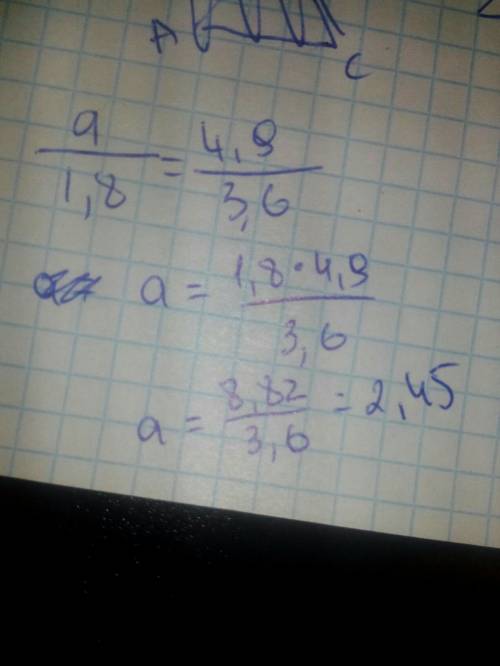 A C
a/1,8 = 4,9/3,6
a = 1,8 · 4,9/3,6
a = 8,82/3,6 = 2,45